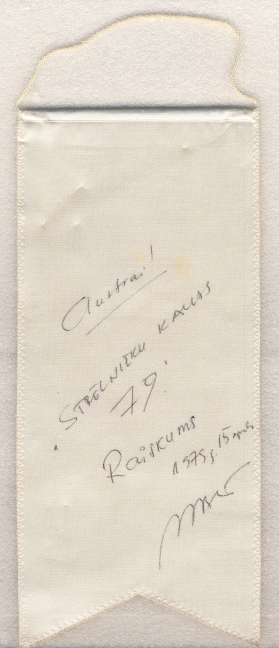 Austrai!
"STRĒLNIEKU KAUSS
79"
Raiskums
1979.g. 15 apr.